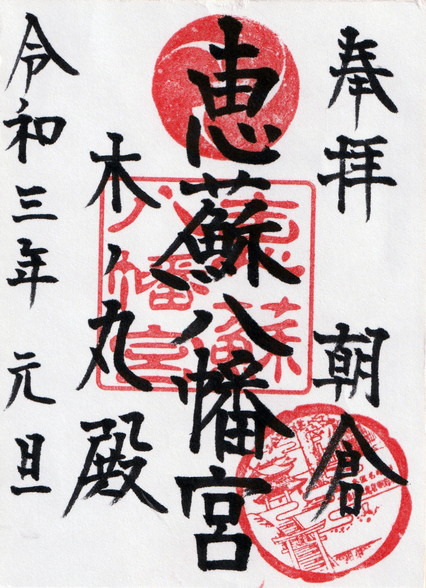 奉拝
朝倉
恵蘇八幡宮
恵蘇
八幡宮
木ノ丸殿
令和三年 元旦